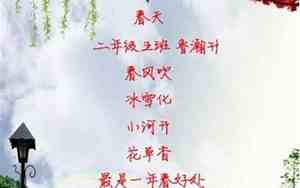 春天
二年级五班 鲁瀚升
春风吹
冰雪化
小河开
花草香
最是一年春好处